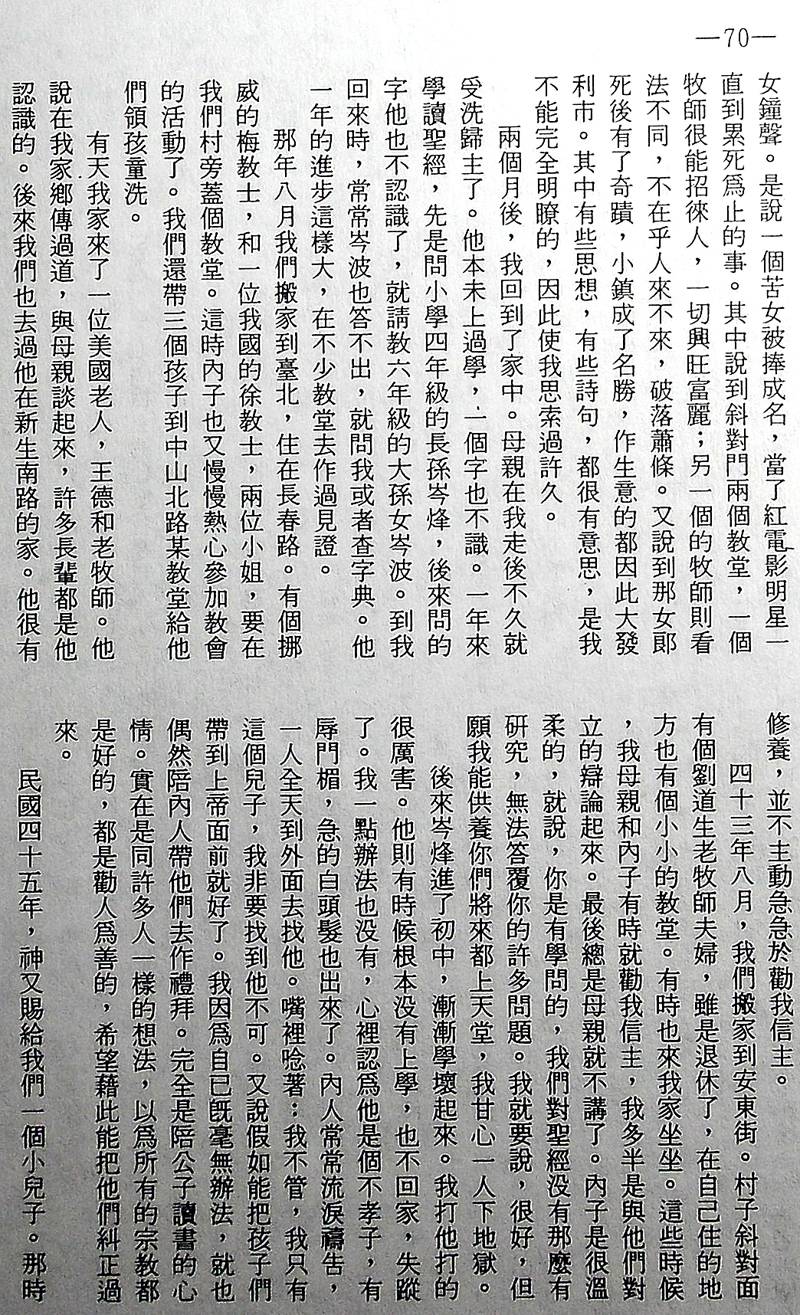 —70—
女鐘聲。是說一個苦女被捧成名，當了紅電影明星一
直到累死爲止的事。其中說到斜對門兩個教堂，一個
牧師很能招徠人，一切興旺富麗；另一個的牧師則看
法不同，不在乎人來不來，破落蕭條。又說到那女郎
死後有了奇蹟，小鎮成了名勝，作生意的都因此大發
利市。其中有些思想，有些詩句，都很有意思，是我
不能完全明瞭的，因此使我思索過許久。
兩個月後，我回到了家中。母親在我走後不久就
受洗歸主了。他本未上過學，一個字也不識。一年來
學讀聖經，先是問小學四年級的長孫岑烽，後來問的
字他也不認識了，就請教六年級的大孫女岑波。到我
回來時，常常岑波也答不出，就問我或者查字典。他
一年的進步這樣大，在不少教堂去作過見證。
那年八月我們搬家到臺北，住在長春路。有個挪
威的梅教士，和一位我國的徐教士，兩位小姐，要在
我們村旁蓋個教堂。這時內子也又慢慢熱心參加教會
的活動了。我們還帶三個孩子到中山北路某教堂給他
們領孩童洗。
有天我家來了一位美國老人，王德和老牧師。他
說在我家鄉傳過道，與母親談起來，許多長輩都是他
認識的。後來我們也去過他在新生南路的家。他很有
修養，並不主動急急於勸我信主。
四十三年八月，我們搬家到安東街。村子斜對面
有個劉道生老牧師夫婦，雖是退休了，在自己住的地
方也有個小小的教堂。有時也來我家坐坐。這些時候
，我母親和內子有時就勸我信主，我多半是與他們對
立的辯論起來。最後總是母親就不講了。內子是很溫
柔的，就說，你是有學問的，我們對聖經沒有那麼有
研究，無法答覆你的許多問題。我就要說，很好，但
願我能供養你們將來都上天堂，我甘心一人下地獄。
後來岑烽進了初中，漸漸學壞起來。我打他打的
很厲害。他則有時候根本沒有上學，也不回家，失蹤
了。我一點辦法也沒有，心裡認爲他是個不孝子，有
辱門楣，急的白頭髮也出來了。內人常常流淚禱告，
一人全天到外面去找他。嘴裡唸著：我不管，我只有
這個兒子，我非要找到他不可。又說假如能把孩子們
帶到上帝面前就好了。我因爲自己旣毫無辦法，就也
偶然陪內人帶他們去作禮拜。完全是陪公子讀書的心
情。實在是同許多人一樣的想法，以爲所有的宗教都
是好的，都是勸人爲善的，希望藉此能把他們糾正過
來。
民國四十五年，神又賜給我們一個小兒子。那時